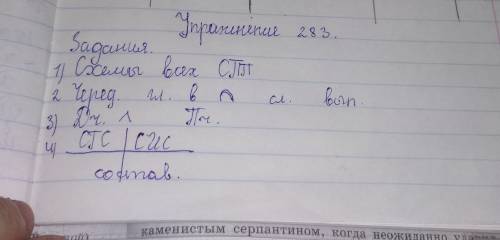 Упражнение 283.
Задания.
1) Схемы всех СПП
2 Черед. гл. в ⌒ сл. вып.
3) ч. ^ Пч.
4) СГС | СИС
сопов.
каменистым серпантином, когда неожиданно